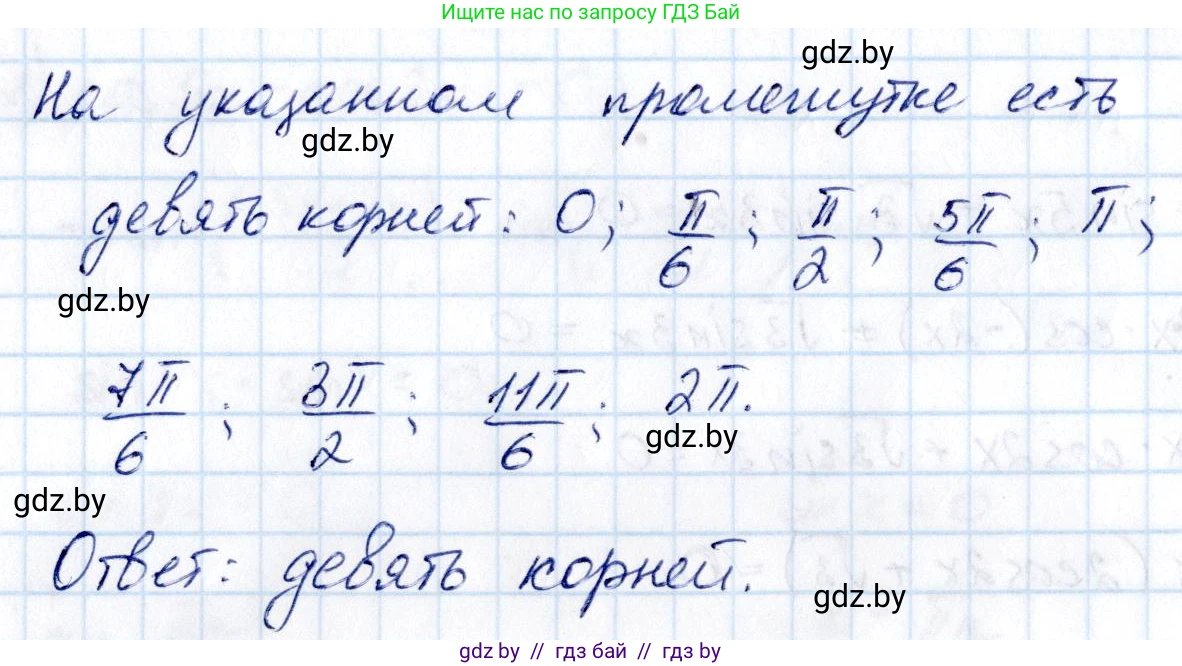 Ищите нас по запросу ГДЗ Бай
gdz.by
На указанном промежутке есть
gdz.by
девять корней: 0; π/6; π/2; 5π/6; π;
gdz.by
7π/6; 3π/2; 11π/6; 2π.
gdz.by
gdz.by
Ответ: девять корней.
gdz.by
gdz by // гдз бай // гдз by